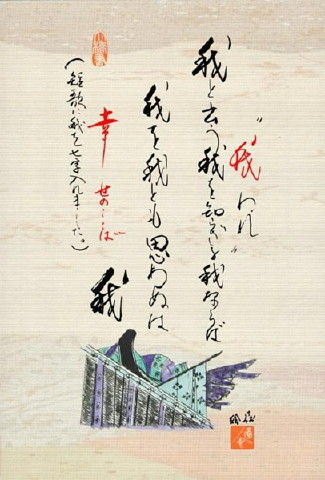 〝我〟われ
我と云う我を知る我ならば
我を我とも思わぬは
我
幸せのことば
（短歌に我を七字入れました。）